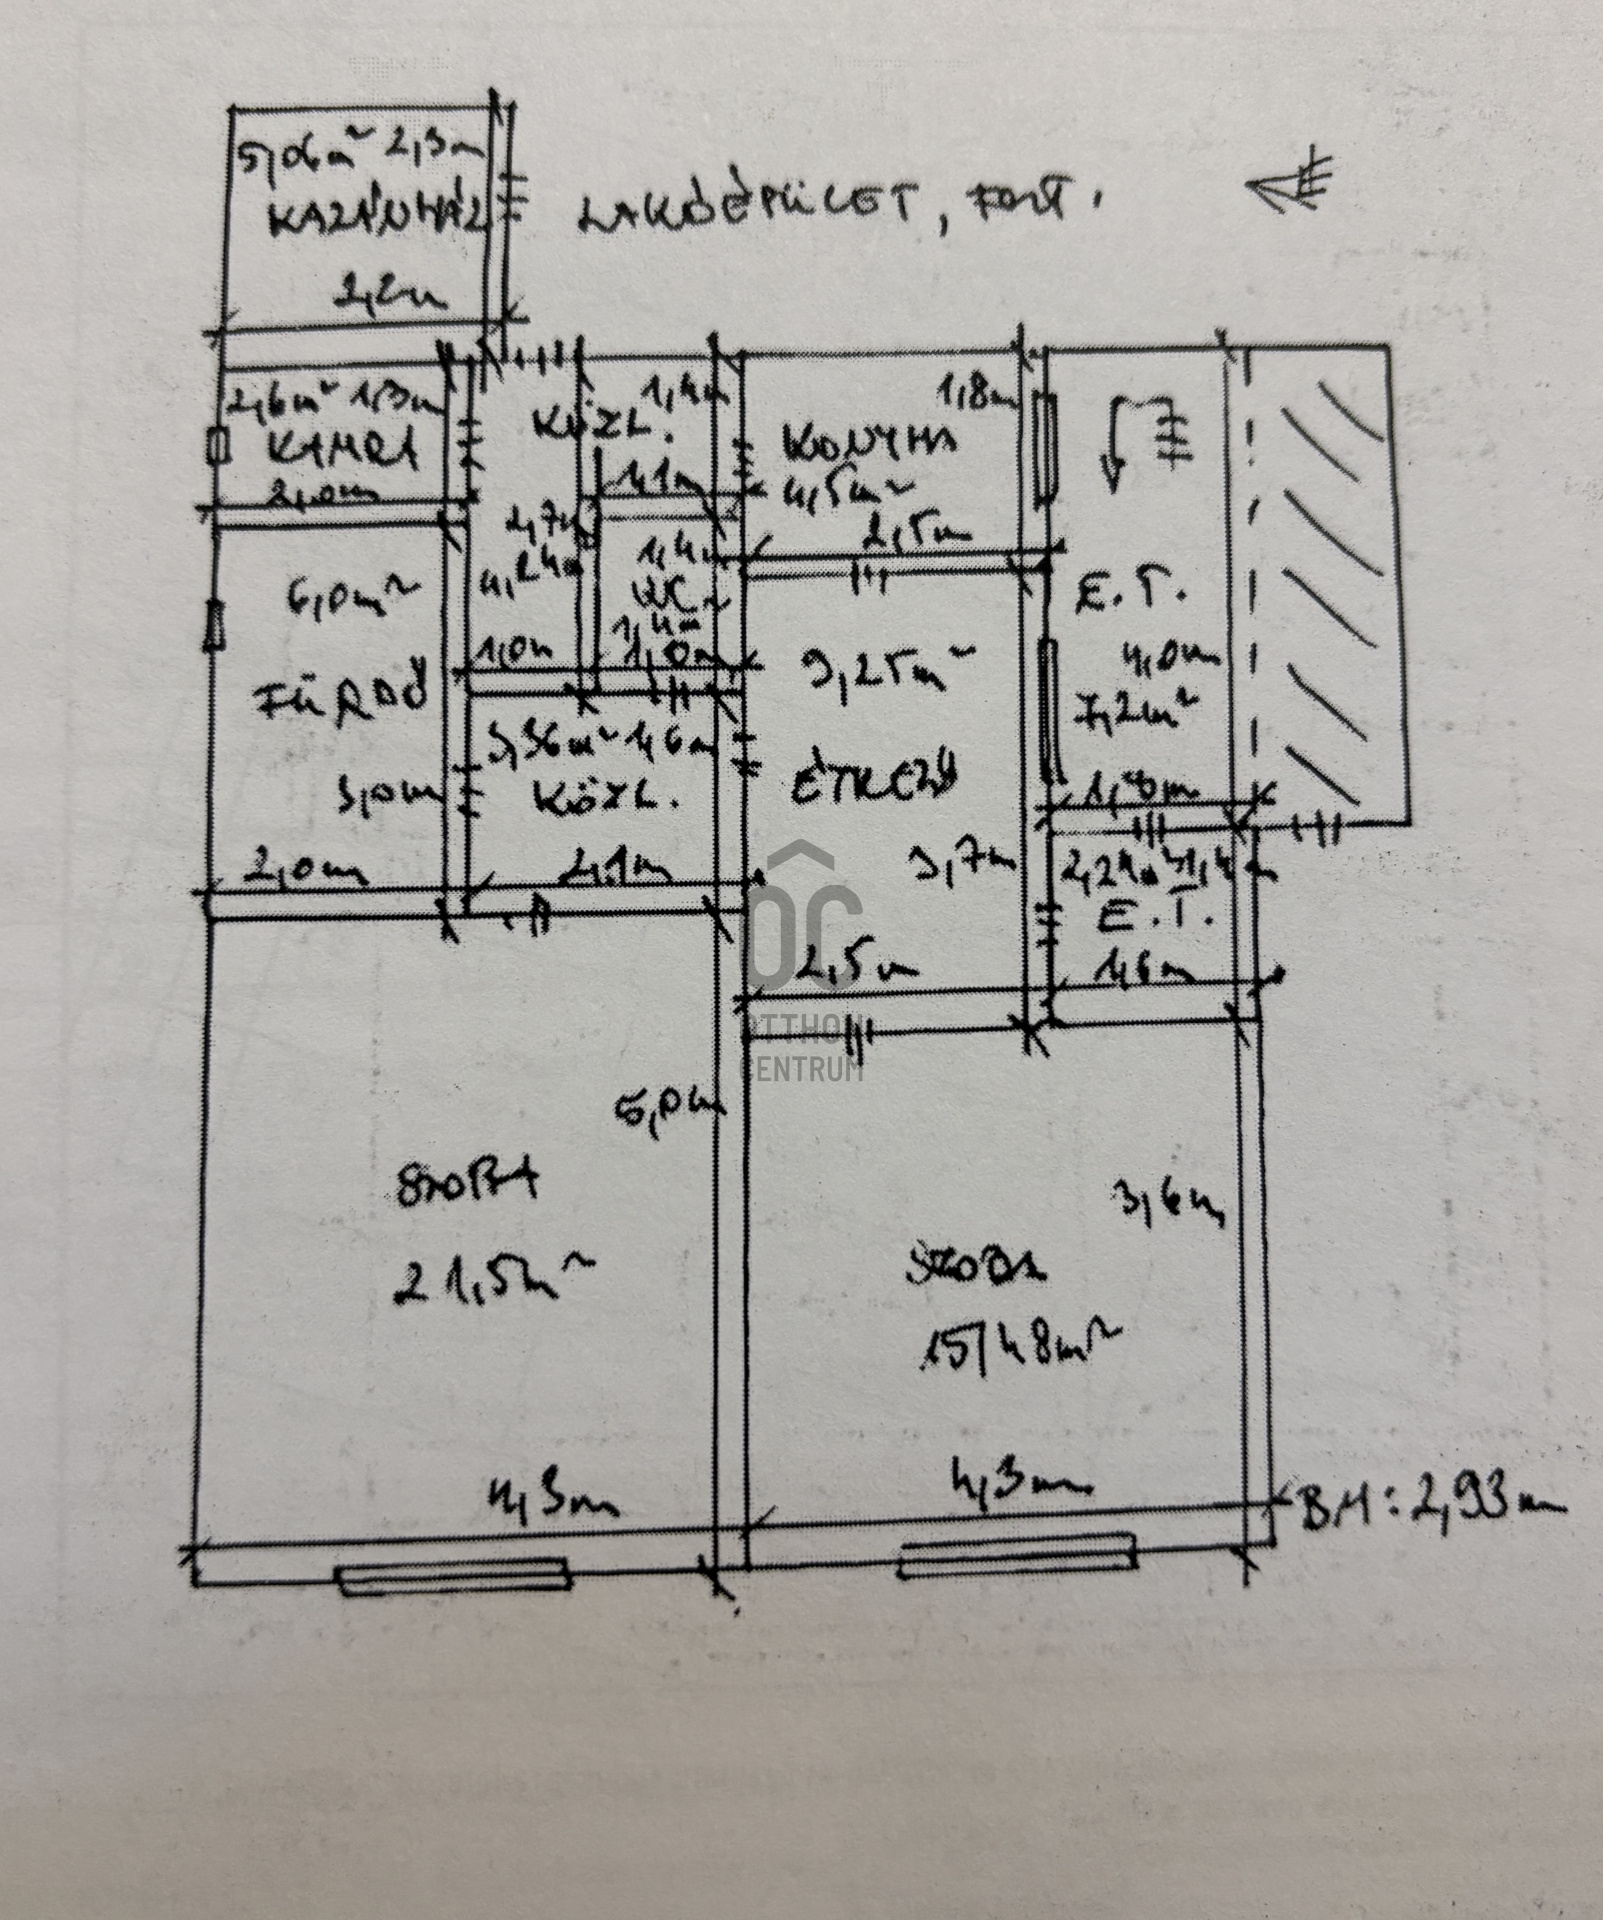 5,06m² 2,3m
KAZÁNHÁZ
2,2m
LAKÓÉPÜLET, FSZT.
2,6m² 1,3m
KAMRA
2,0m
KÖZL.
1,4m
1,1m
2,7m
4,24m
1,0m
1,4m
WC
1,4m
1,0m
KONYHA
1,8m
4,5m²
2,5m
E.T.
4,0m
7,2m²
1,8m
6,0m²
FÜRDŐ
3,0m
2,0m
3,36m² 1,6m
KÖZL.
2,1m
9,25m²
ÉTKEZŐ
3,7m
2,5m
2,24m² 1,4m
E.T.
1,6m
OTTHON
CENTRUM
5,0m
SZOBA
21,5m²
4,3m
3,6m
SZOBA
15,48m²
4,3m
BM: 2,93m